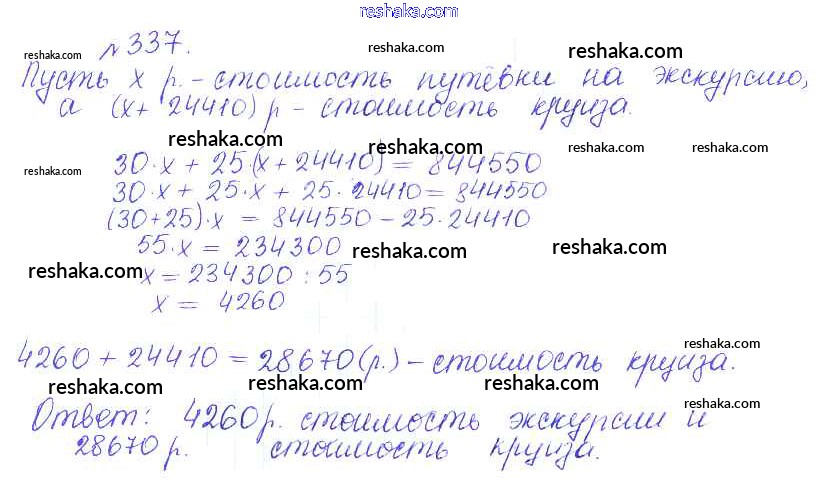 reshaka.com
№337.
reshaka.com reshaka.com reshaka.com
Пусть x р. - стоимость путёвки на экскурсию,
а (x + 24410) р - стоимость круиза.
reshaka.com reshaka.com reshaka.com reshaka.com
30·x + 25·(x + 24410) = 844550
reshaka.com
30·x + 25·x + 25·24410 = 844550
(30+25)·x = 844550 - 25·24410
55·x = 234300
reshaka.com reshaka.com
reshaka.com
x = 234300 : 55
x = 4260
reshaka.com
4260 + 24410 = 28670 (р.) - стоимость круиза.
reshaka.com reshaka.com reshaka.com
reshaka.com
Ответ: 4260 р. стоимость экскурсии и
28670 р. стоимость круиза.